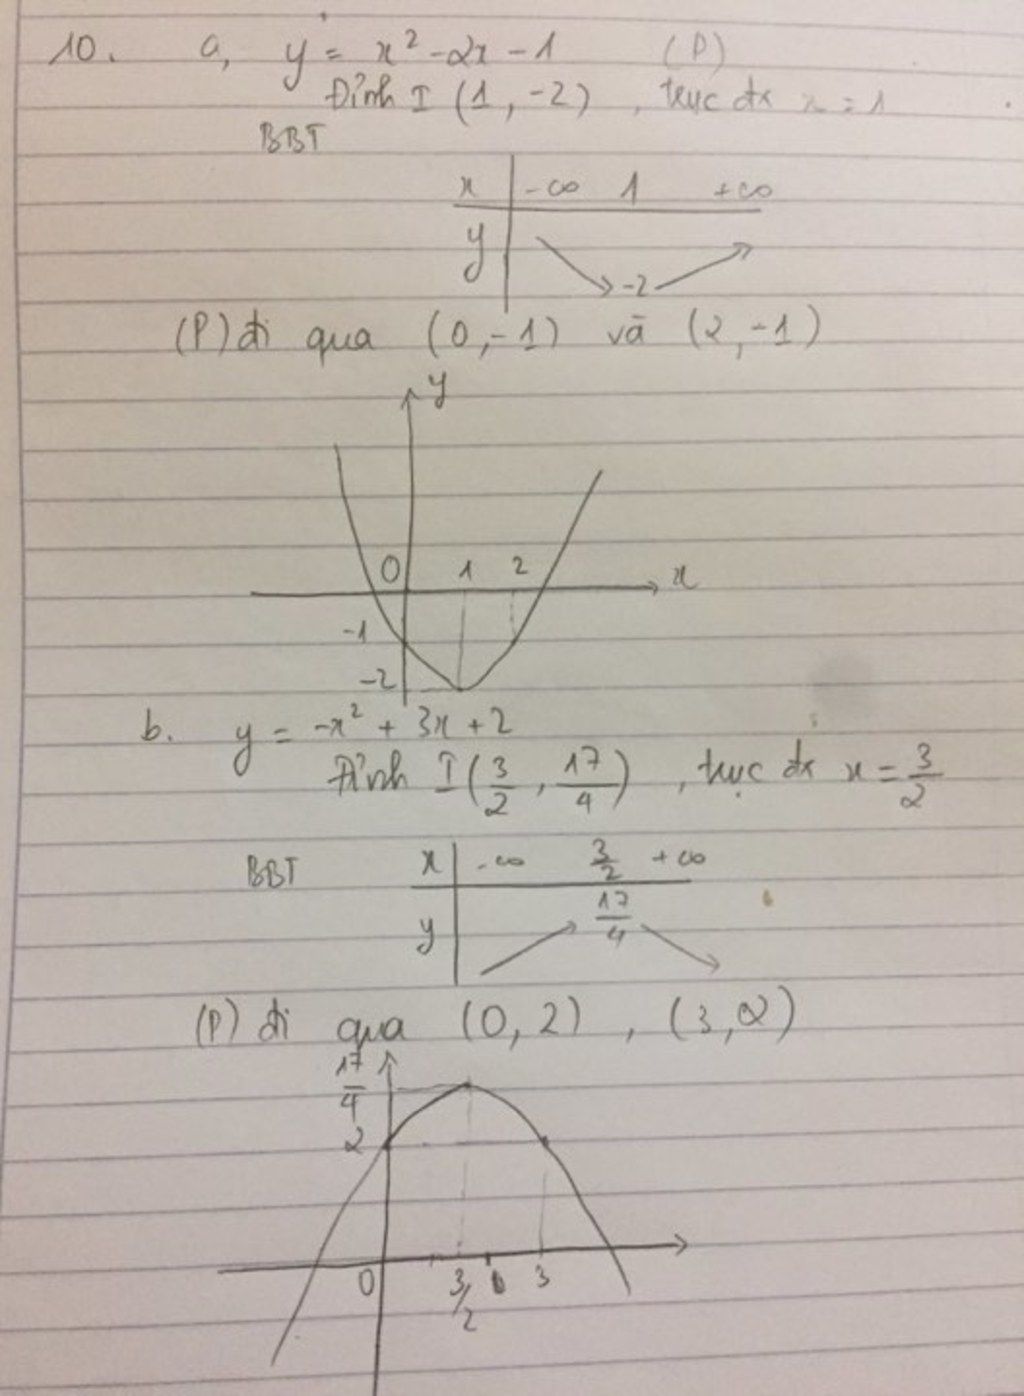 10. a, y = x² - 2x - 1 (P)
Đỉnh I (1, -2) , trục đx x = 1
BBT
x -∞ 1 +∞
y
-2
(P) đi qua (0,-1) và (2,-1)
y
0 1 2 x
-1
-2
b. y = -x² + 3x + 2
Đỉnh I (3/2, 17/4) , trục đx x = 3/2
BBT x -∞ 3/2 +∞
y 17/4
(P) đi qua (0, 2) , (3, 2)
17/4
2
0 3/2 3